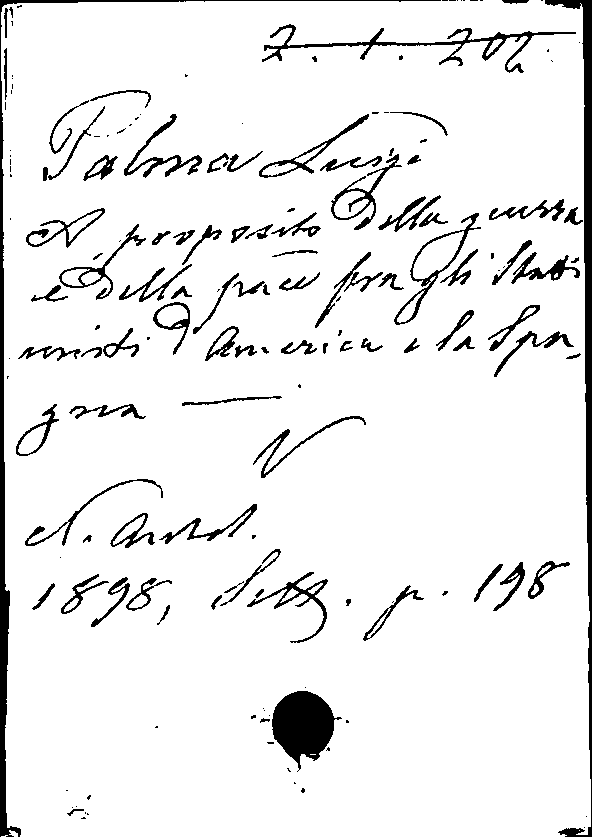 2. 1. 202
Palma Luigi
A proposito della guerra
e della pace fra gli Stati
uniti d'America e la Spa-
gna —
V
N. Antol.
1898, Sett. p. 198